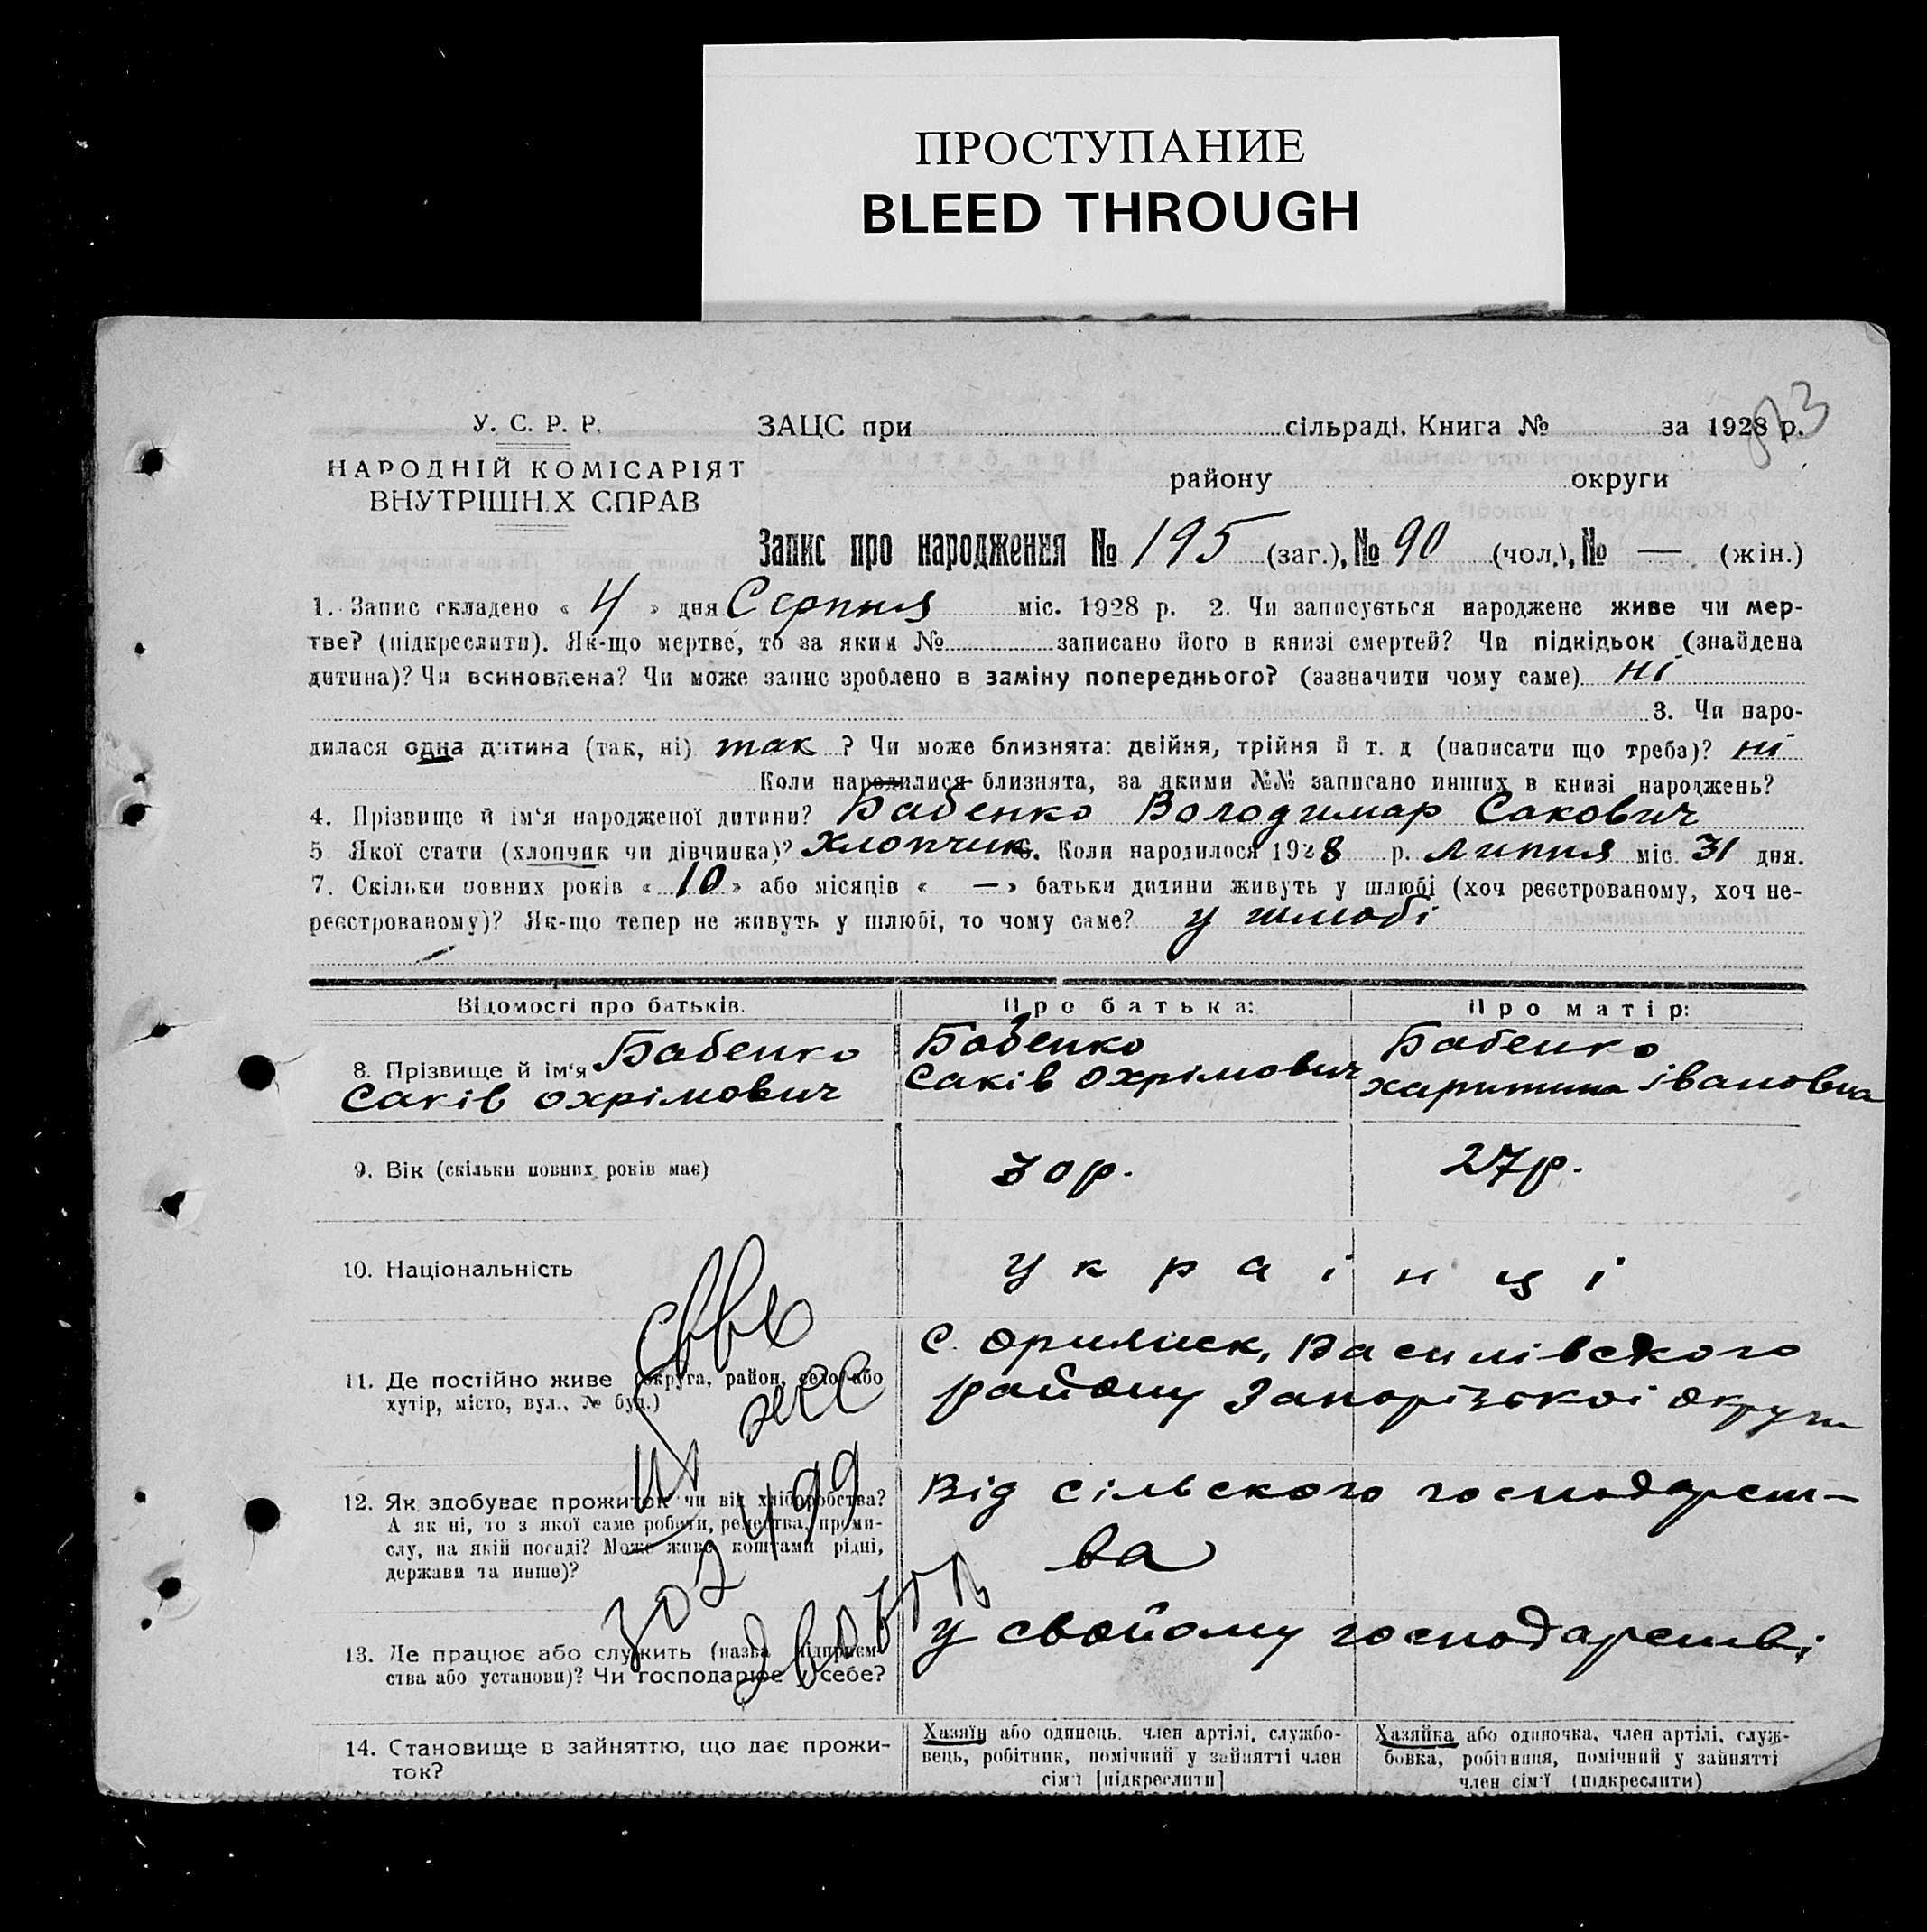 ПРОСТУПАНИЕ
BLEED THROUGH
93
У. С. Р. Р.
НАРОДНІЙ КОМІСАРІЯТ
ВНУТРІШН.Х СПРАВ
ЗАЦС при сільраді. Книга № за 1928 р.
району округи
Запис про народження № 195 (заг.), № 90 (чол.), № — (жін.)
1. Запис складено « 4 » дня Серпня міс. 1928 р. 2. Чи записується народжене живе чи мер-
тве? (підкреслити). Як-що мертве, то за яким № записано його в книзі смертей? Чи підкідьок (знайдена
дитина)? Чи всиновлена? Чи може запис зроблено в заміну попереднього? (зазначити чому саме) ні
3. Чи наро-
дилася одна дитина (так, ні) так ? Чи може близнята: двійня, трійня й т. д (написати що треба)? ні
Коли народилися близнята, за якими №№ записано инших в книзі народжень?
4. Прізвище й ім'я народженої дитини? Бабенко Володимар Сакович
5 Якої стати (хлопчик чи дівчинка)? Хлопчик 6. Коли народилося 1928 р. липня міс. 31 дня.
7. Скільки повних років « 10 » або місяців « — » батьки дитини живуть у шлюбі (хоч реєстрованому, хоч не-
реєстрованому)? Як-що тепер не живуть у шлюбі, то чому саме? у шлюбі
Відомості про батьків. Про батька: Про матір:
8. Прізвище й ім'я Бабенко
Саків Охрімович
Бабенко
Саків Охрімович
Бабенко
Харитина Івановна
9. Вік (скільки повних років має) 30 р. 27 р.
10. Національність українці
11. Де постійно живе (округа, район, село або
хутір, місто, вул., № буд.)
с. Орлянск, Василівского
району Запорізскоі округи
12. Як здобуває прожиток чи від хліборобства?
А як ні, то з якої саме роботи, ремества, проми-
слу, на якій посаді? Може живе коштами рідні,
держави та инше)?
Від сільского господарст-
ва
499
13. Де працює або служить (назва підприєм-
ства або установи)? Чи господарює у себе?
у свойому господарстві
14. Становище в зайняттю, що дає прожи-
ток?
Хазяїн або одинець, член артілі, службо-
вець, робітник, помічний у зайнятті член
сім'ї [підкреслити]
Хазяйка або одиночка, член артілі, служ-
бовка, робітниця, помічний у зайнятті
член сім'ї (підкреслити)